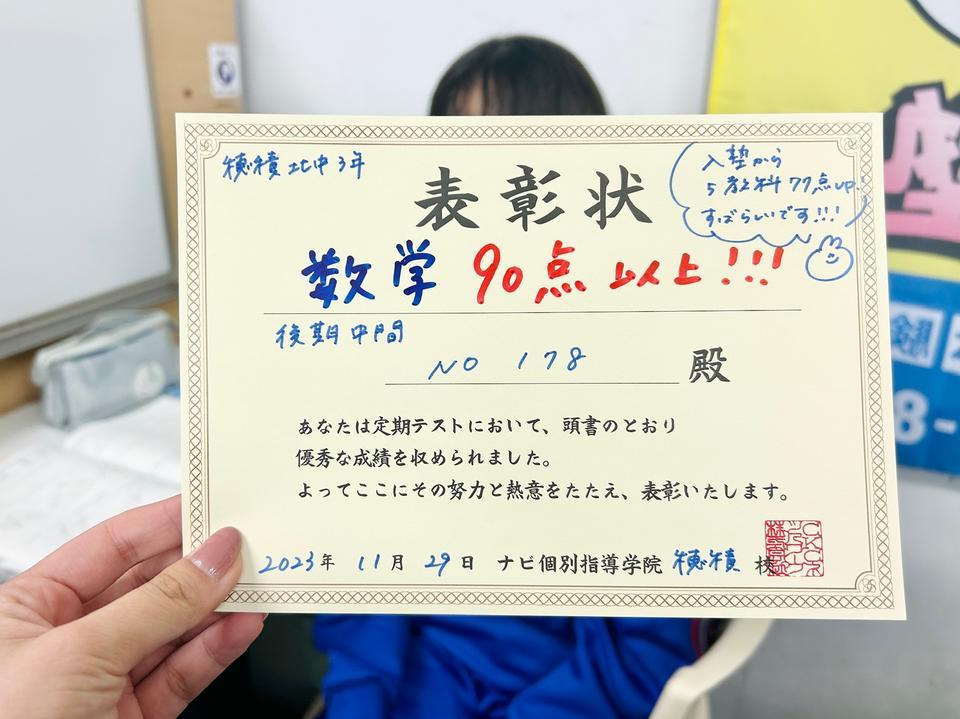 穂積北中3年
表彰状
入塾から
5教科77点UP!
すばらしいです!!!
数学 90点以上!!!
後期中間
NO 178 殿
あなたは定期テストにおいて、頭書のとおり
優秀な成績を収められました。
よってここにその努力と熱意をたたえ、表彰いたします。
2023年 11月 29日 ナビ個別指導学院 穂積 校
8-